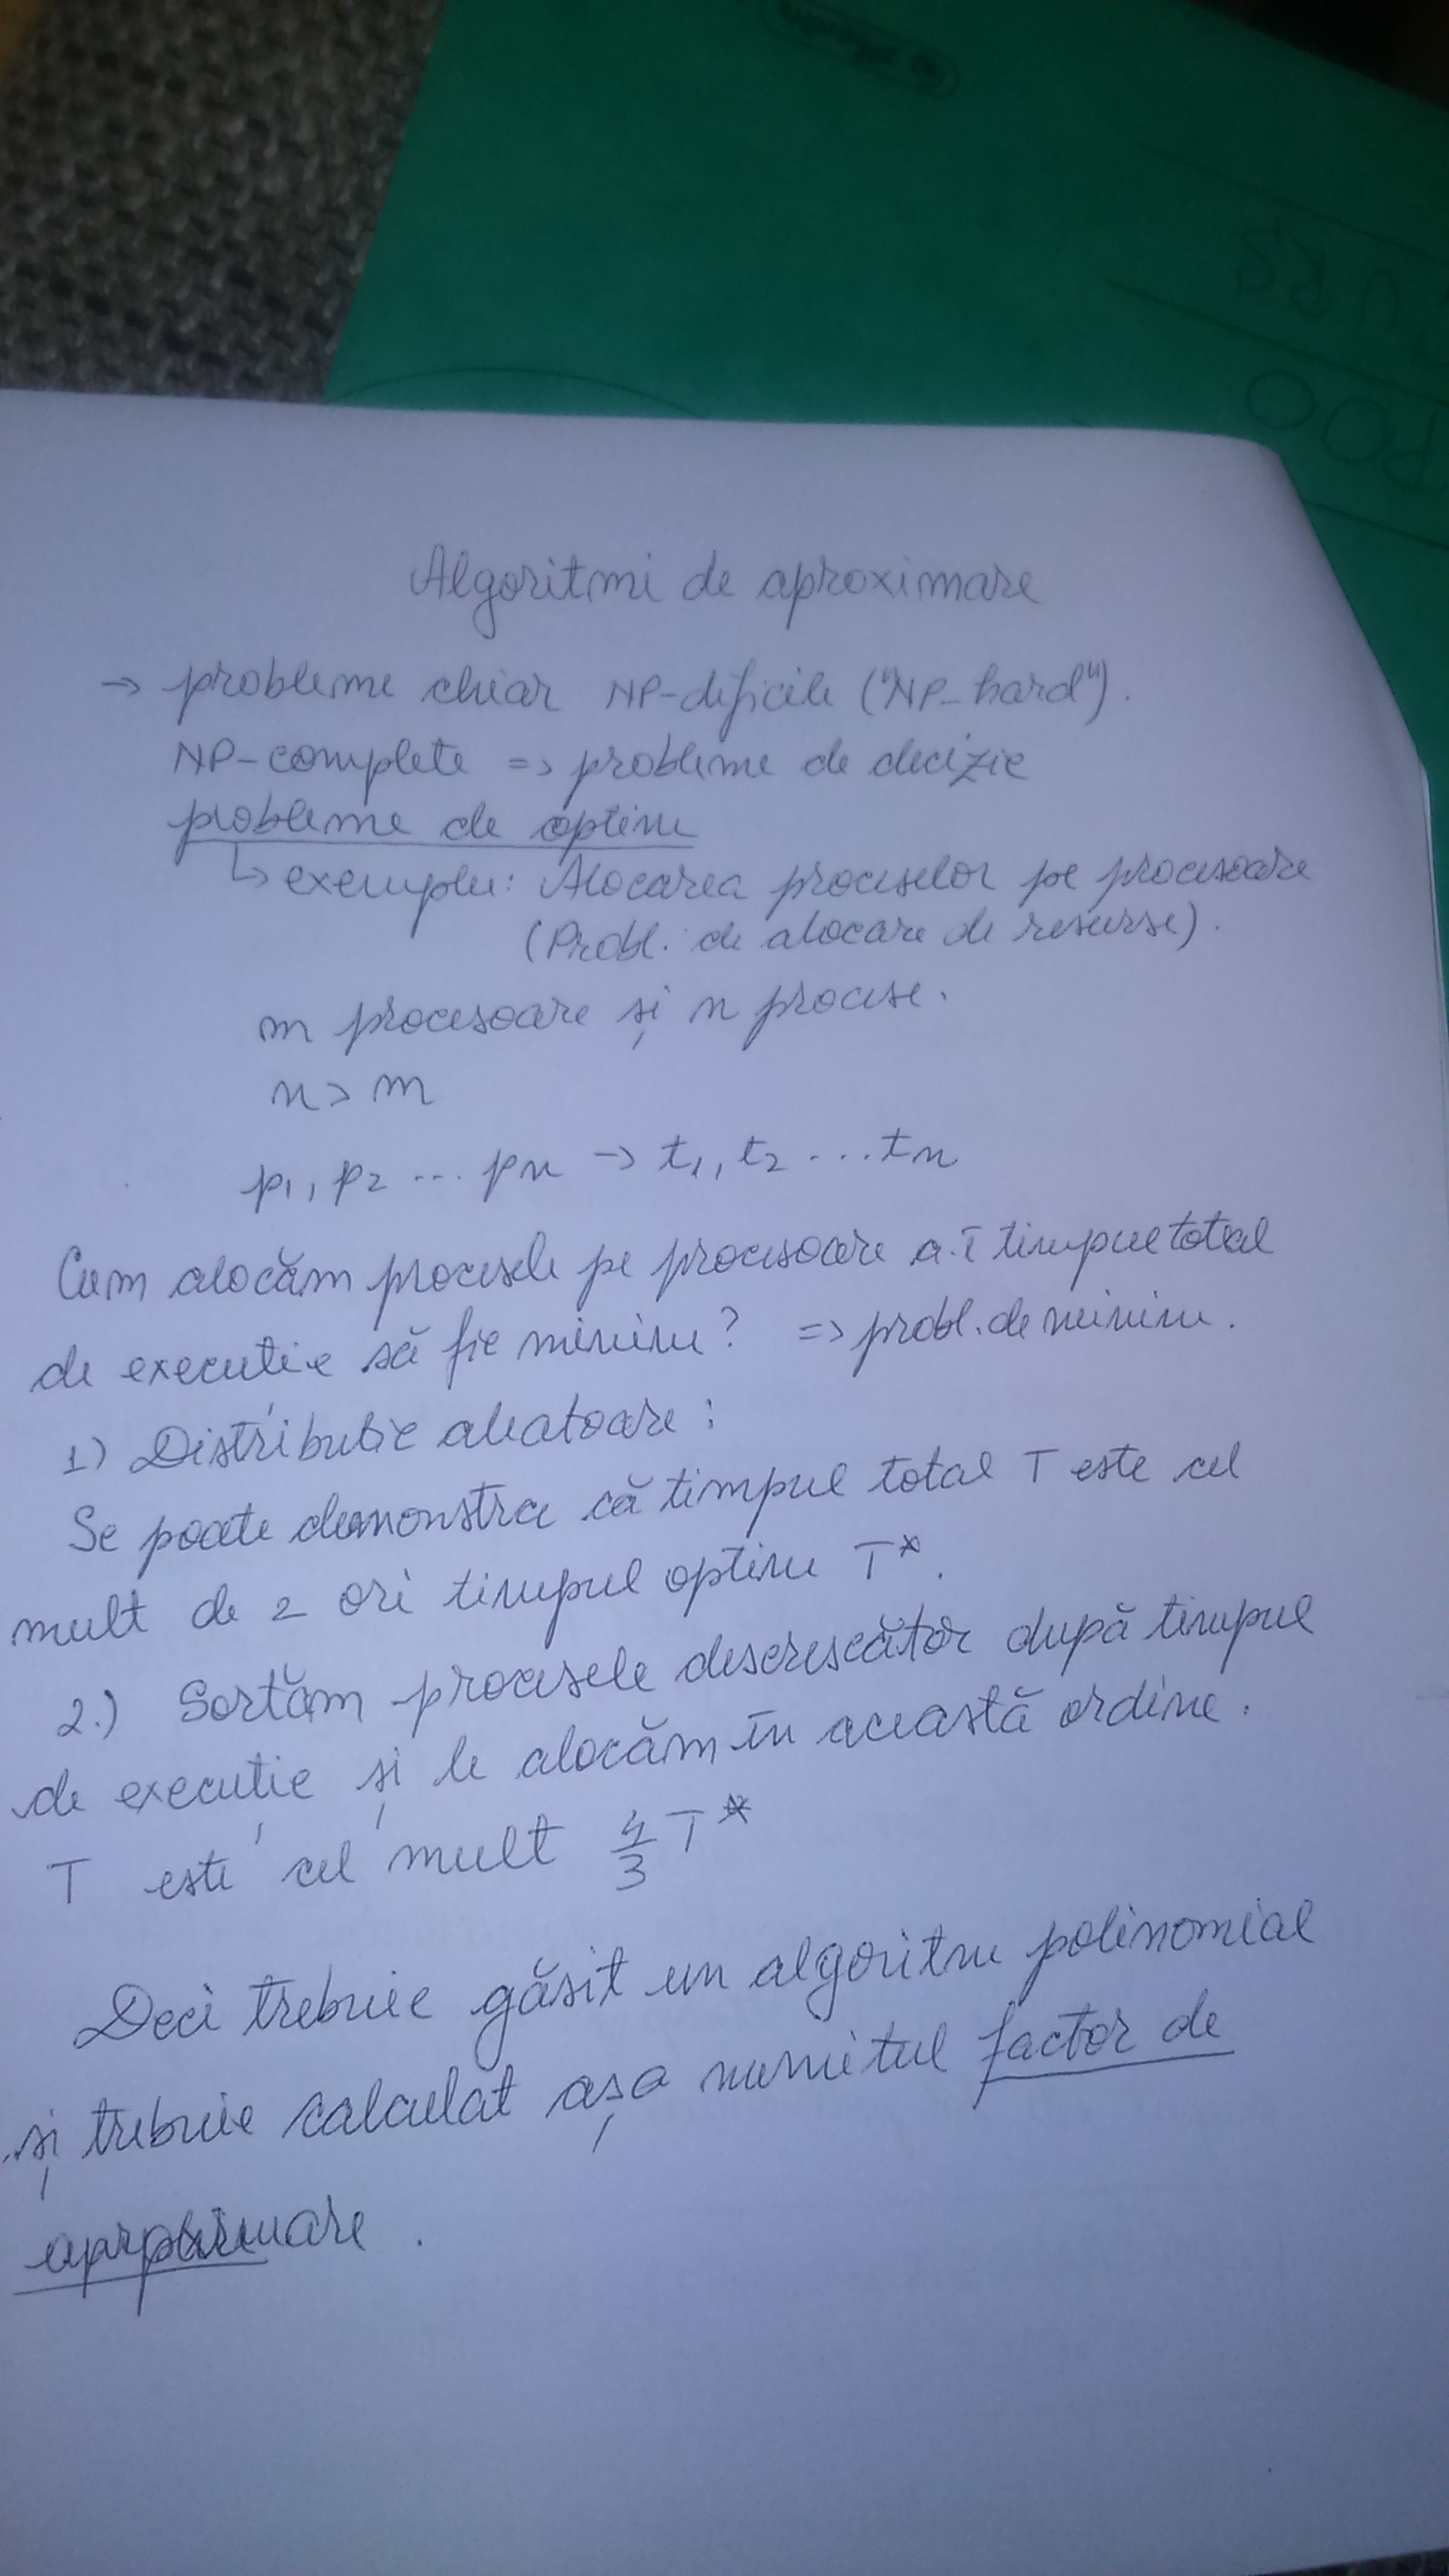 CURS
POO
Algoritmi de aproximare
→ probleme chiar NP-dificile ("NP-hard").
NP-complete => probleme de decizie
probleme de optim
↳ exemplu: Alocarea proceselor pe procesoare
(Probl. de alocare de resurse).
m procesoare și n procese.
n > m
p1, p2 ... pn → t1, t2 ... tn
Cum alocăm procesele pe procesoare a.î timpul total
de execuție să fie minim? => probl. de minim.
1) Distribuție aleatoare:
Se poate demonstra că timpul total T este cel
mult de 2 ori timpul optim T*.
2.) Sortăm procesele descrescător după timpul
de execuție și le alocăm în această ordine.
T este cel mult 4/3 T*
Deci trebuie găsit un algoritm polinomial
și trebuie calculat așa numitul factor de
aproximare.